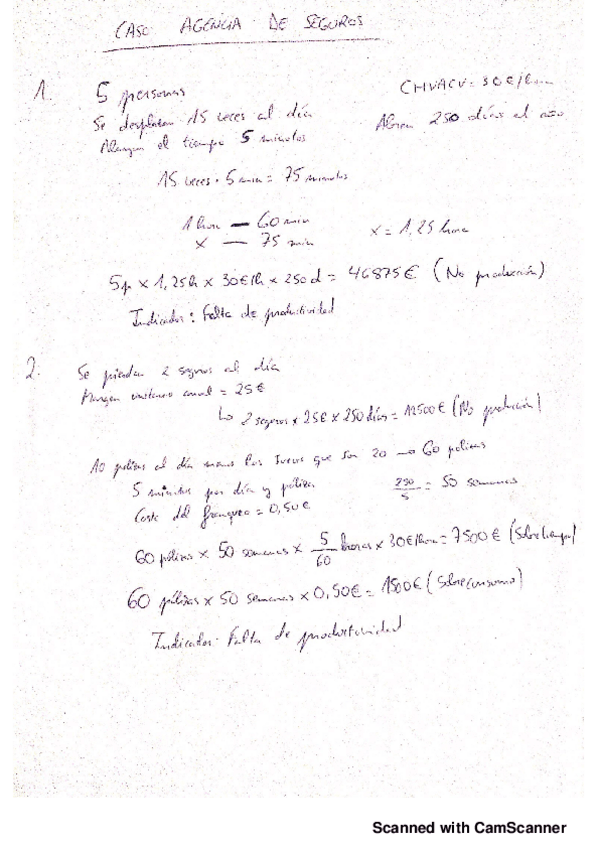 CASO AGENCIA DE SEGUROS
1. 5 personas
CHVACV = 30€/hora
Se desplazan 15 veces al día
Abren 250 días al año
Alargan el tiempo 5 minutos
15 veces · 5 min = 75 minutos
1 hora — 60 min
x — 75 min
x = 1,25 hora
5p x 1,25h x 30€/h x 250d = 46875€ (No producción)
Indicador: Falta de productividad
2. Se pierden 2 seguros al día
Margen unitario anual = 25€
↳ 2 seguros x 25€ x 250 días = 12500€ (No producción)
10 pólizas al día menos los jueves que son 20 → 60 pólizas
5 minutos por día y póliza
250/5 = 50 semanas
Coste del franqueo = 0,50€
60 pólizas x 50 semanas x 5/60 horas x 30€/hora = 7500€ (Sobretiempo)
60 pólizas x 50 semanas x 0,50€ = 1500€ (Sobreconsumo)
Indicador: Falta de productividad
Scanned with CamScanner